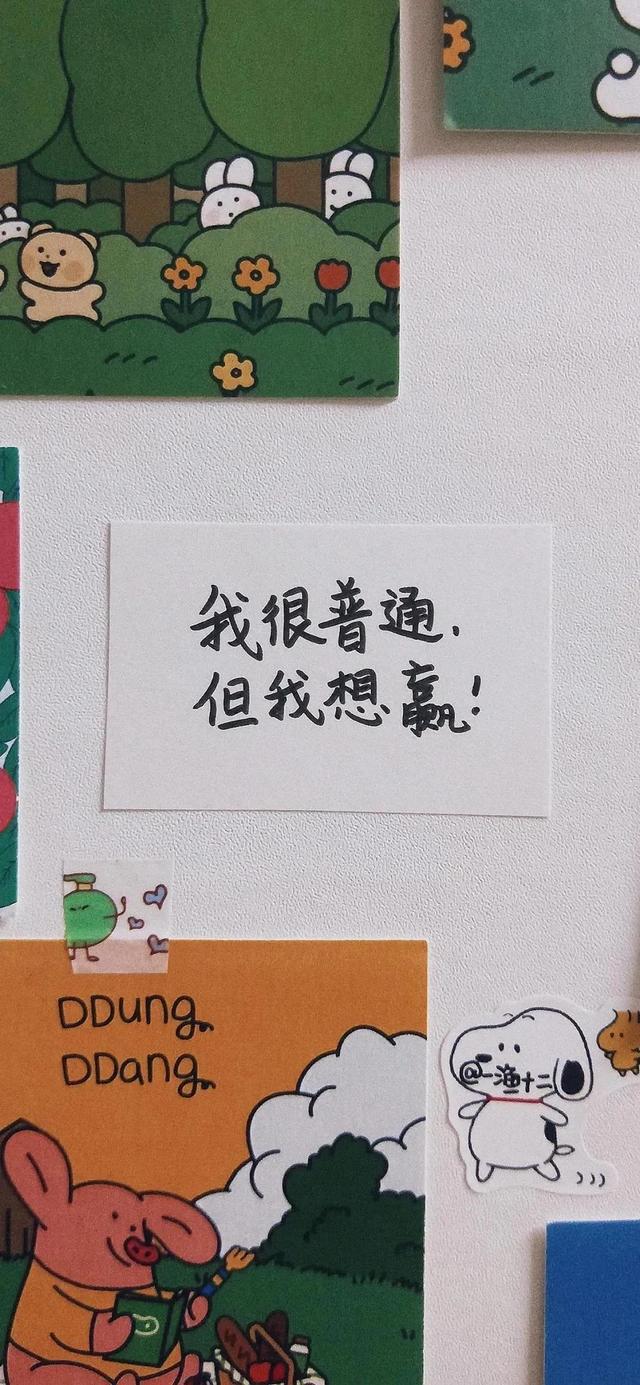 我很普通,
但我想赢!
DDung
DDang
@一渔十二